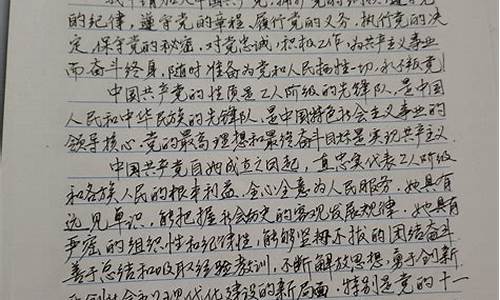 我申请加入中国共产党,拥护党的纲领,遵守党
的纪律,遵守党的章程,履行党的义务,执行党的决
定,保守党的秘密,对党忠诚,积极工作,为共产主义事业
而奋斗终身,随时准备为党和人民牺牲一切,永不叛党!
中国共产党的性质是工人阶级的先锋队,是中国
人民和中华民族的先锋队,是中国特色社会主义事业的
领导核心,党的最高理想和最终奋斗目标是实现共产主义.
中国共产党自她成立之日起,直忠实代表工人阶级
和各族人民的根本利益,全心全意为人民服务.她具有
远见卓识,能把握社会历史的客观发展规律.她具有
严密的组织性和纪律性,能够坚持不拔的团结奋斗
善于总结和吸取经验教训,不断解放思想,勇于创新
现代化建设的新局面.特别是党的十一